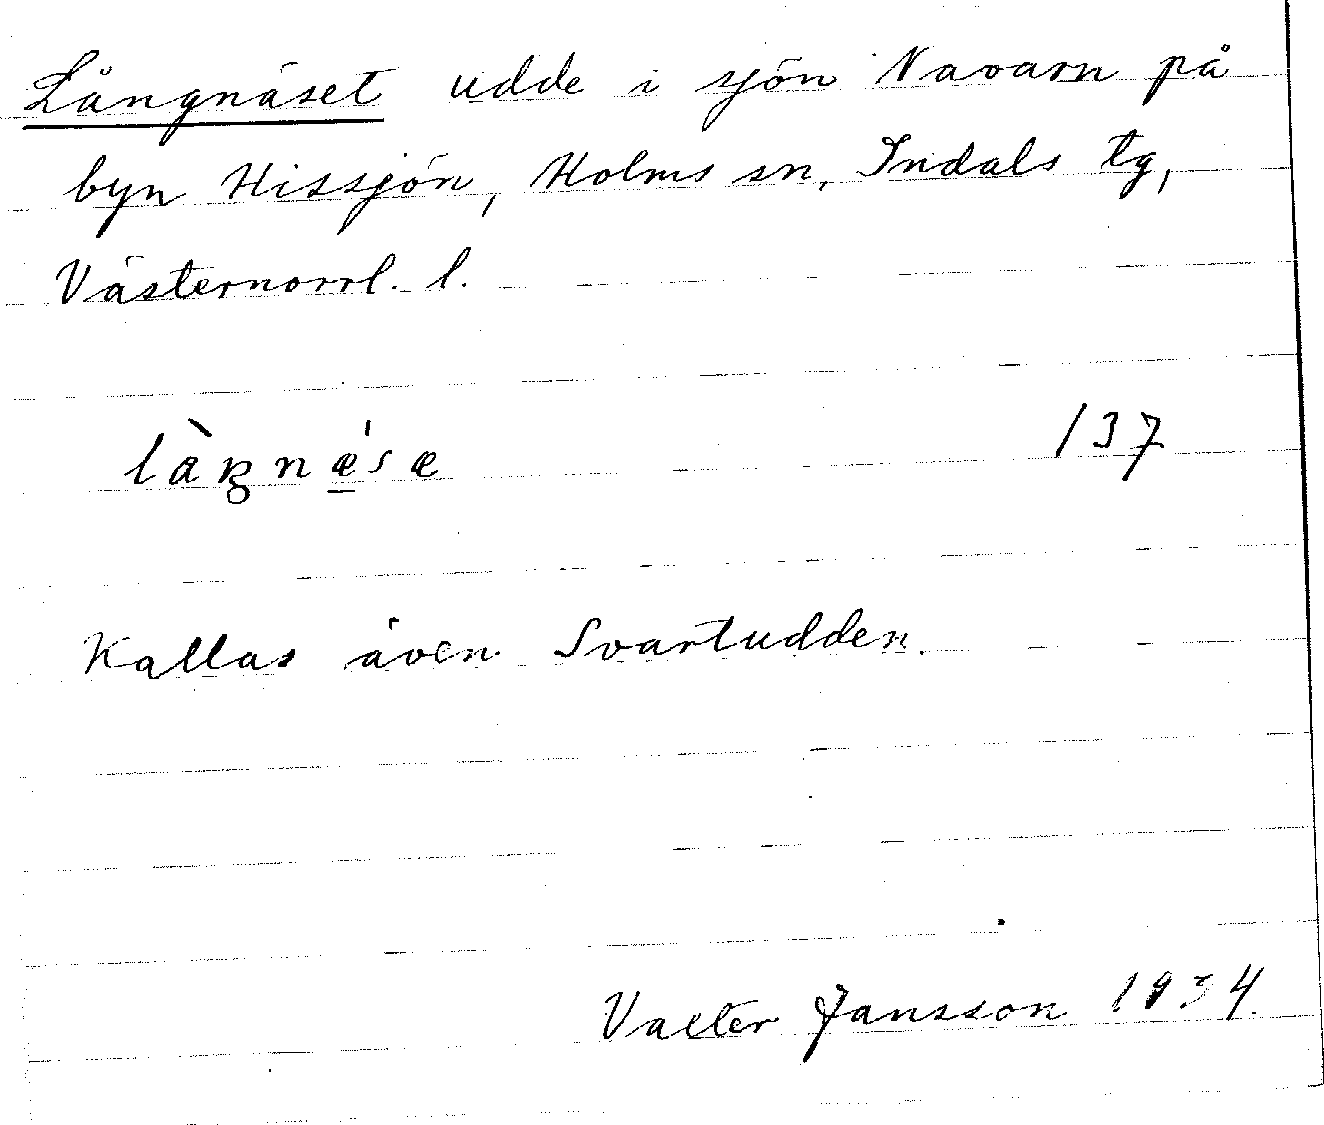 Långnäset udde i sjön Navarn på
byn Hissjön, Holms sn, Indals tg,
Västernorrl. l.
làŋnǽ̠sæ 137
Kallas även Svartudden.
Valter Jansson 1934